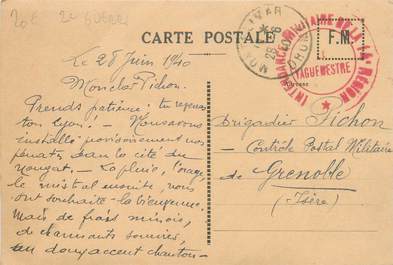 20E 2e GUERRE
CARTE POSTALE
F.M.
MONTELIMAR
28 -6 40
DROME
VAGUEMESTRE
Le 28 Juin 1940
Mon cher Pichon.
Prends patience, tu reverras
ton Lyon! - Nous avons
installé provisoirement nos
pénates dans la cité du
Nougat. - La pluie, l'orage,
le mistral ensuite, nous
ont souhaité la bienvenue.
Mais de frais minois,
de charmants sourires,
un doux accent chanton-
Brigadier Pichon
- Contrôle Postal Militaire
de Grenoble
(Isère)